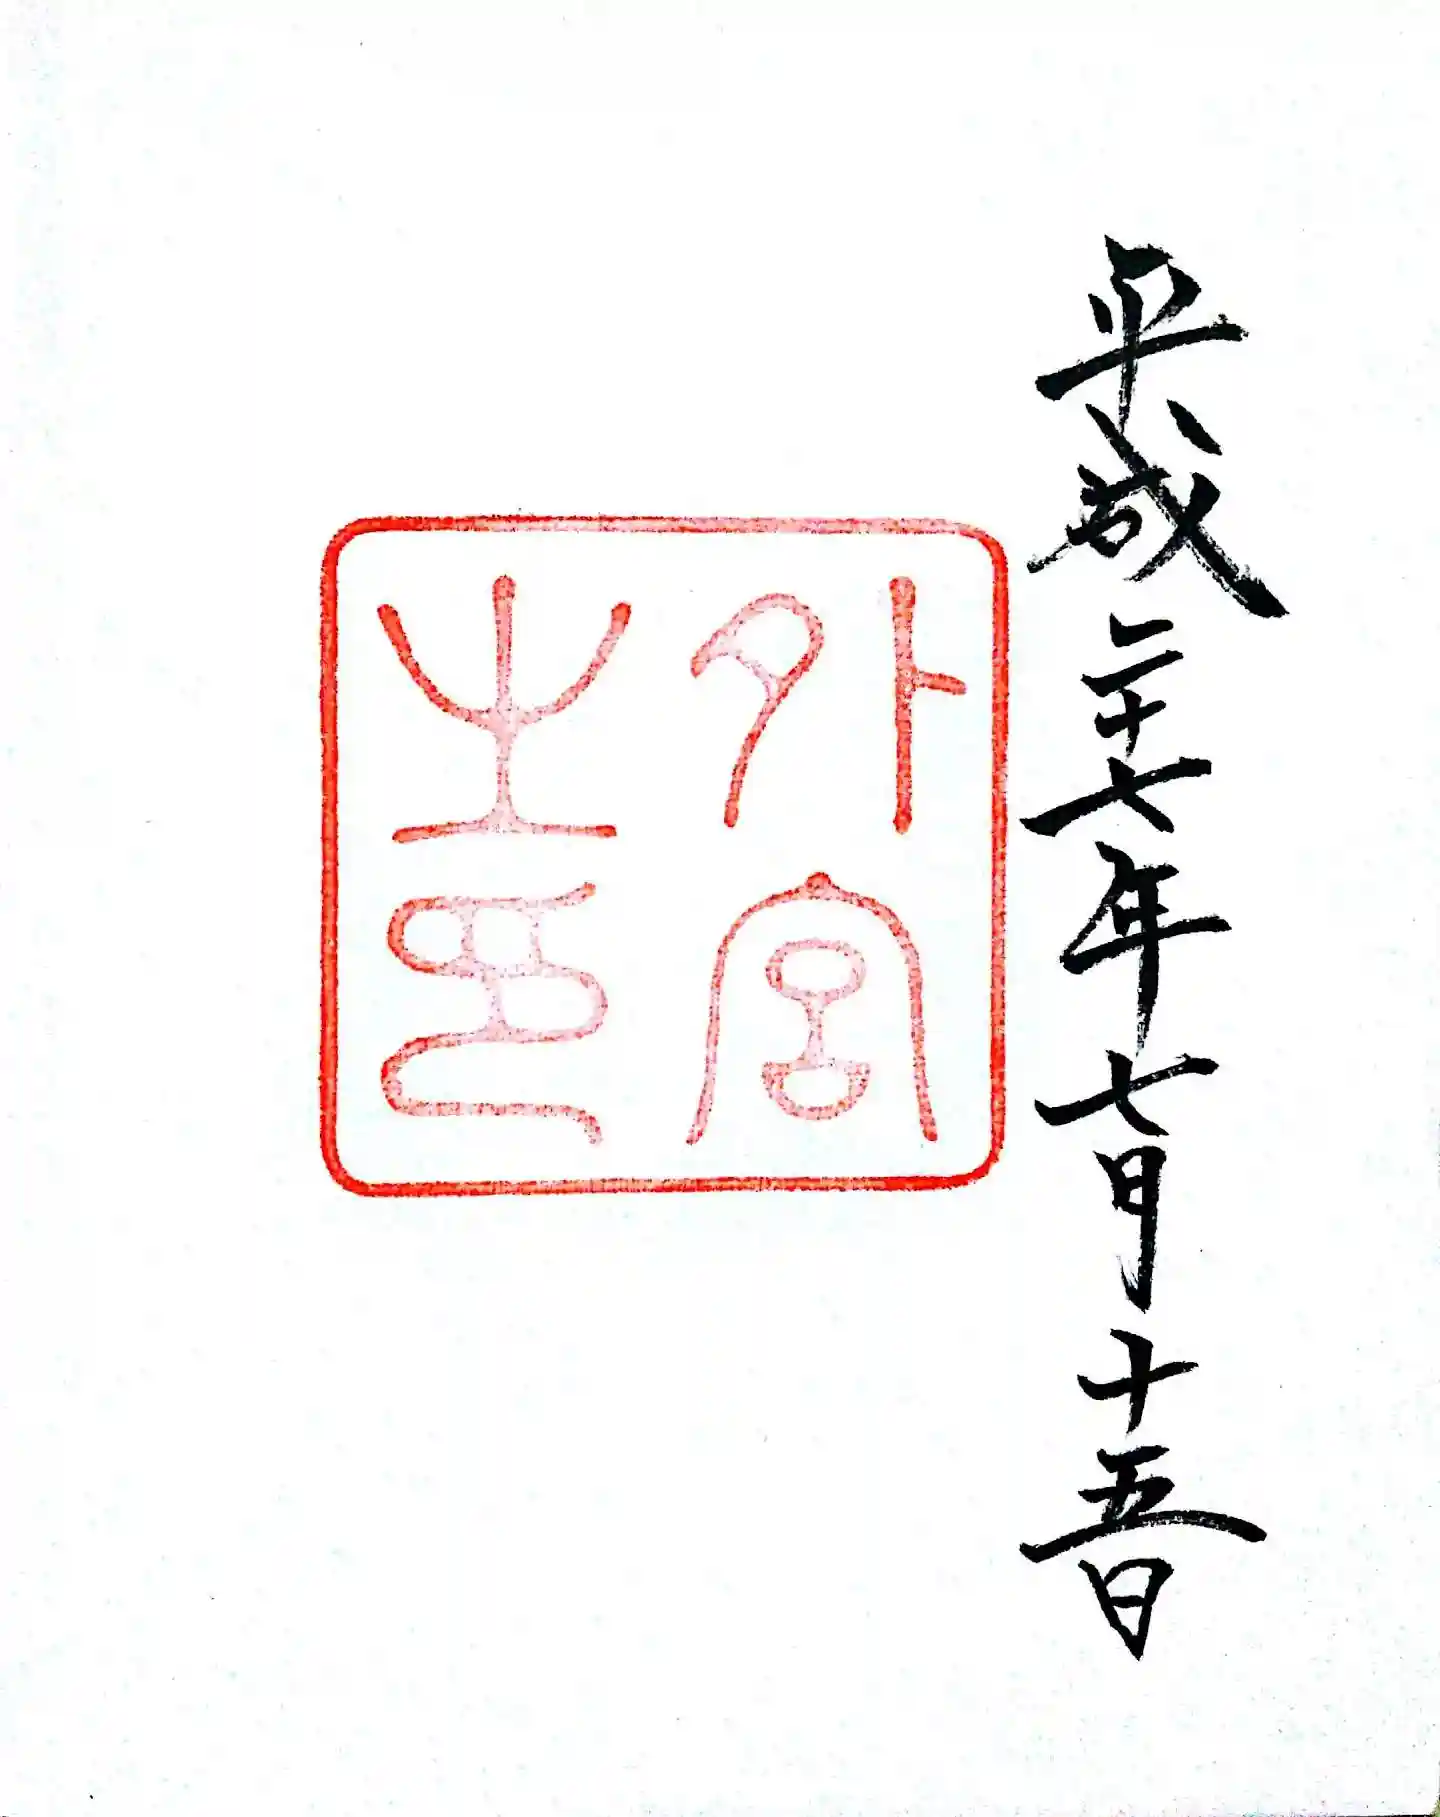 平成二十七年七月十五日
外宮
之印